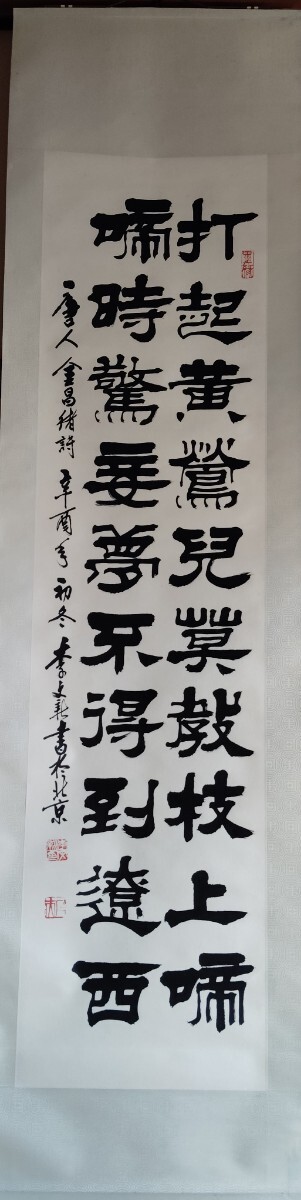 打起黃鶯兒莫教枝上啼
啼時驚妾夢不得到遼西
唐人金昌緒詩 辛酉年初冬 李文新書於北京